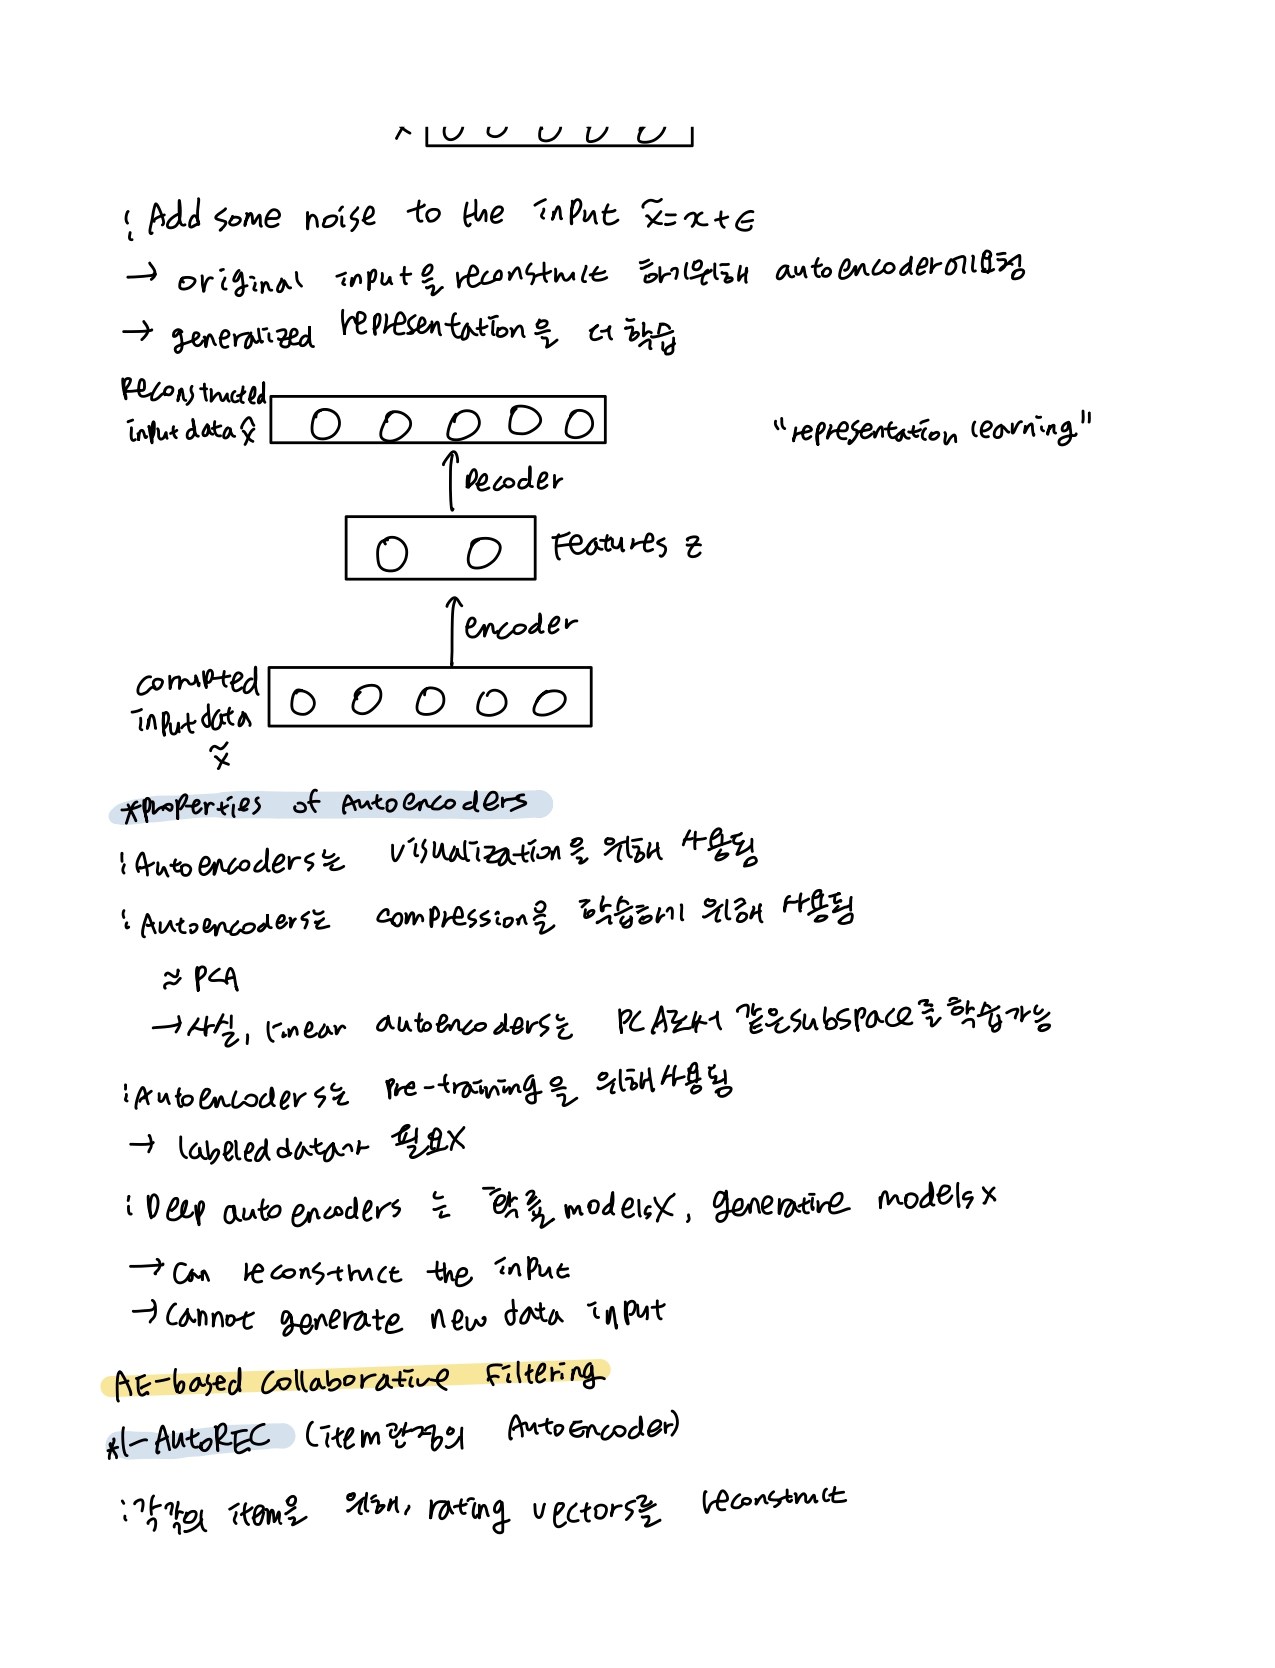 x
: Add some noise to the input x̃ = x + ϵ
→ original input을 reconstruct 하기위해 autoencoder에 요청
→ generalized representation을 더 학습
Reconstructed
input data x̂
"representation learning"
Decoder
Features z
encoder
corrupted
input data
x̃
*Properties of Autoencoders
: Autoencoders는 visualization을 위해 사용됨
: Autoencoders는 compression을 학습하기 위해 사용됨
≈ PCA
→ 사실, linear autoencoders는 PCA로써 같은 subspace를 학습가능
: Autoencoders는 pre-training을 위해 사용됨
→ labeled data가 필요X
: Deep autoencoders는 확률 models X, generative models x
→ can reconstruct the input
→ cannot generate new data input
AE-based Collaborative Filtering
*I-AutoREC (item관점의 AutoEncoder)
: 각각의 item을 위해, rating vectors를 reconstruct